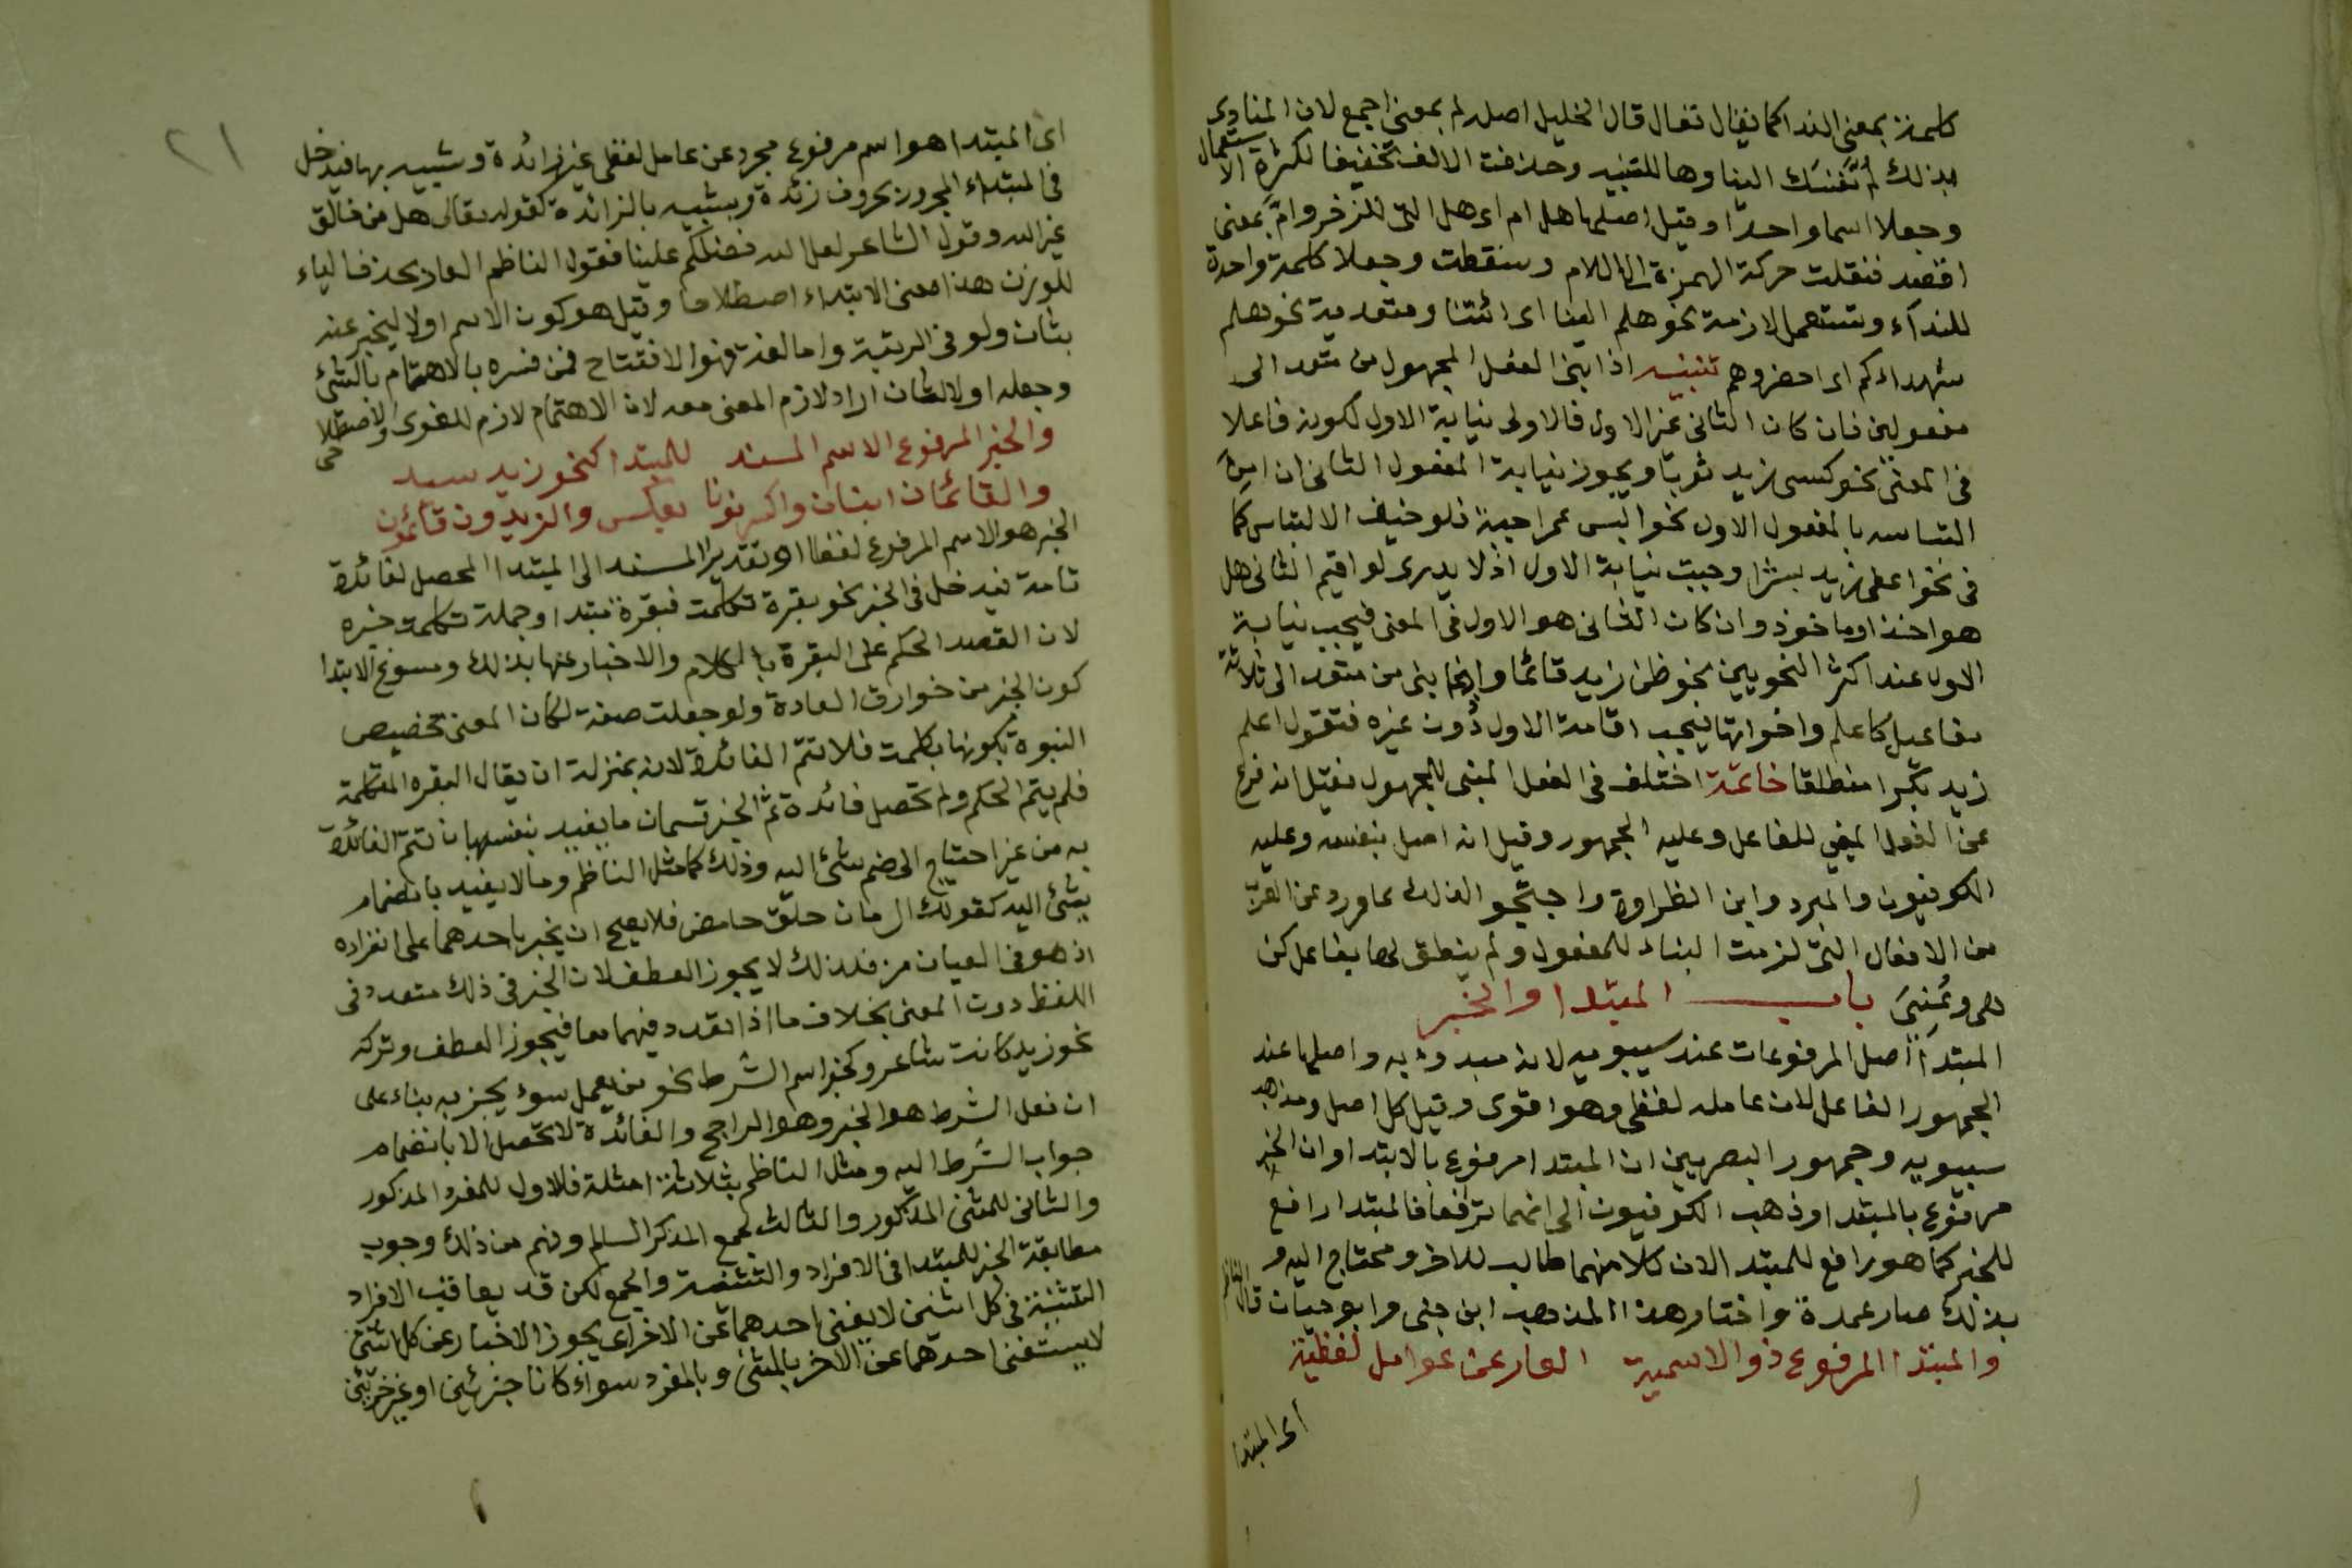 كلمة بمعنى الندا كما يقال تعال قال الخليل اصله لم بمعنى اجمع لان المنادى
بذلك لم نفسك الينا وها للتنبيه وحذفت الالف تخفيفا لكثرة الاستعمال
وجعلا اسما واحدا وقيل اصلها هل ام اى هل التى للزخر وامّ بمعنى
اقصد فنقلت حركة الهمزة الى اللام وسقطت وجعلا كلمة واحدة
للنداء وتستعمل لازمة نحو هلم الينا اى ائتنا ومتعدية نحو هلم
شهداءكم اى احضروهم تنبيه اذا بنى الفعل المجهول من متعد الى
مفعولين فان كان الثانى غير الاول فالاولى نيابة الاول لكونه فاعلا
فى المعنى نحو كسى زيد ثوبا ويجوز نيابة المفعول الثانى ان امن
التباسه بالمفعول الاول نحو البس عمرا جبة فلو خيف الالتباس كما
فى نحو اعطى زيد بشرا وجبت نيابة الاول اذ لا يدرى لو اقيم الثانى هل
هو اخذ او ماخوذ وان كان الثانى هو الاول فى المعنى فيجب نيابة
الاول عند اكثر النحويين نحو ظن زيد قائما وانما بنى من متعد الى ثلاثة
مفاعيل كاعلم واخواتها فيجب اقامة الاول دون غيره فتقول اعلم
زيد بكرا منطلقا خاتمة اختلف فى الفعل المبنى للمجهول فقيل انه فرع
عن الفعل المبنى للفاعل وعليه الجمهور وقيل انه اصل بنفسه وعليه
الكوفيون والمبرد وابن الطراوة واحتجوا لذلك بما ورد عن العرب
من الافعال التى لزمت البناء للمفعول ولم ينطق لها بفاعل كن
هى وعُنِىَ باب المبتدا والخبر
المبتدأ اصل المرفوعات عند سيبويه لانه مبدوء به واصلها عند
الجمهور الفاعل لان عامله لفظى وهو اقوى وقيل كل اصل ومذهب
سيبويه وجمهور البصريين ان المبتدا مرفوع بالابتدا وان الخبر
مرفوع بالمبتدا وذهب الكوفيون الى انهما ترافعا فالمبتدا رافع
للخبر كما هو رافع للمبتدا لان كلا منهما طالب للاخر ومحتاج اليه و
بذلك صار عمدة واختار هذا المذهب ابن جنى وابو حيان قال الناظم
والمبتدا المرفوع ذو الاسمية العار عن عوامل لفظية
اى المبتدا
٢١
اى المبتدا هو اسم مرفوع مجرد عن عامل لفظى غير زائدة وشبيه بها فيدخل
فى المبتداء المجرور بحروف زئدة وبشبيه بالزائدة كقوله تعالى هل من خالق
غير الله وقول الشاعر لعل الله فضلكم علينا فقول الناظم العار بحذف الياء
للوزن هذا معنى الابتداء اصطلاحا وقيل هو كون الاسم اولا ليخبر عنه
بثان ولو فى الرتبة واما لغة فهو الافتتاح فمن فسره بالاهتمام بالشئ
وجعله اولا لثان اراد لازم المعنى معه لان الاهتمام لازم للغوى والاصطلاحى
والخبر المرفوع الاسم المسند للمبتدا كنحو زيد سيد
والقائمان ابنان واكسر نونا بعكس والزيدون قائمون
الخبر هو الاسم المرفوع لفظا او تقديرا المسند الى المبتدا المحصل لفائدة
تامة فيدخل فى الخبر نحو بقرة تكلمت فبقرة مبتدا وجملة تكلمت خبره
لان القصد الحكم على البقرة بالكلام والاخبار عنها بذلك ومسوغ الابتدا
كون الخبر من خوارق العادة ولو جعلت صفة لكان المعنى تخصيص
البقرة بكونها تكلمت فلا تتم الفائدة لانه بمنزلة ان يقال البقره المتكلمة
فلم يتم الحكم ولم تحصل فائدة ثم الخبر قسمان ما يفيد بنفسه بان تتم الفائدة
به من غير احتياج الى ضم شئ اليه وذلك كما مثل الناظم وما لا يفيد بانضمام
شئ اليه كقولك الرمان حلو حامض فلا يصح ان يخبر باحدهما على انفراده
اذ هو فى العيان مز فلذلك لا يجوز العطف لان الخبر فى ذلك متعدد فى
اللفظ دون المعنى بخلاف ما اذا تعدد فيهما معا فيجوز العطف وتركه
نحو زيد كاتب شاعر وكخبر اسم الشرط نحو من يعمل سوء يجز به بناء على
ان فعل الشرط هو الخبر وهو الراجح والفائدة لا تحصل الا بانضمام
جواب الشرط اليه ومثل الناظم بثلاثة امثلة فالاول للمفرد المذكور
والثانى للمثنى المذكور والثالث لجمع المذكر السالم وفهم من ذلك وجوب
مطابقة الخبر للمبتدا فى الافراد والتثنية والجمع لكن قد يعاقب الافراد
التثنية فى كل اثنين لا يغنى احدهما عن الاخر اى يجوز الاخبار عن كل اثنين
لا يستغنى احدهما عن الاخر بالمثنى وبالمفرد سواء كانا جزئين او غير جزئين